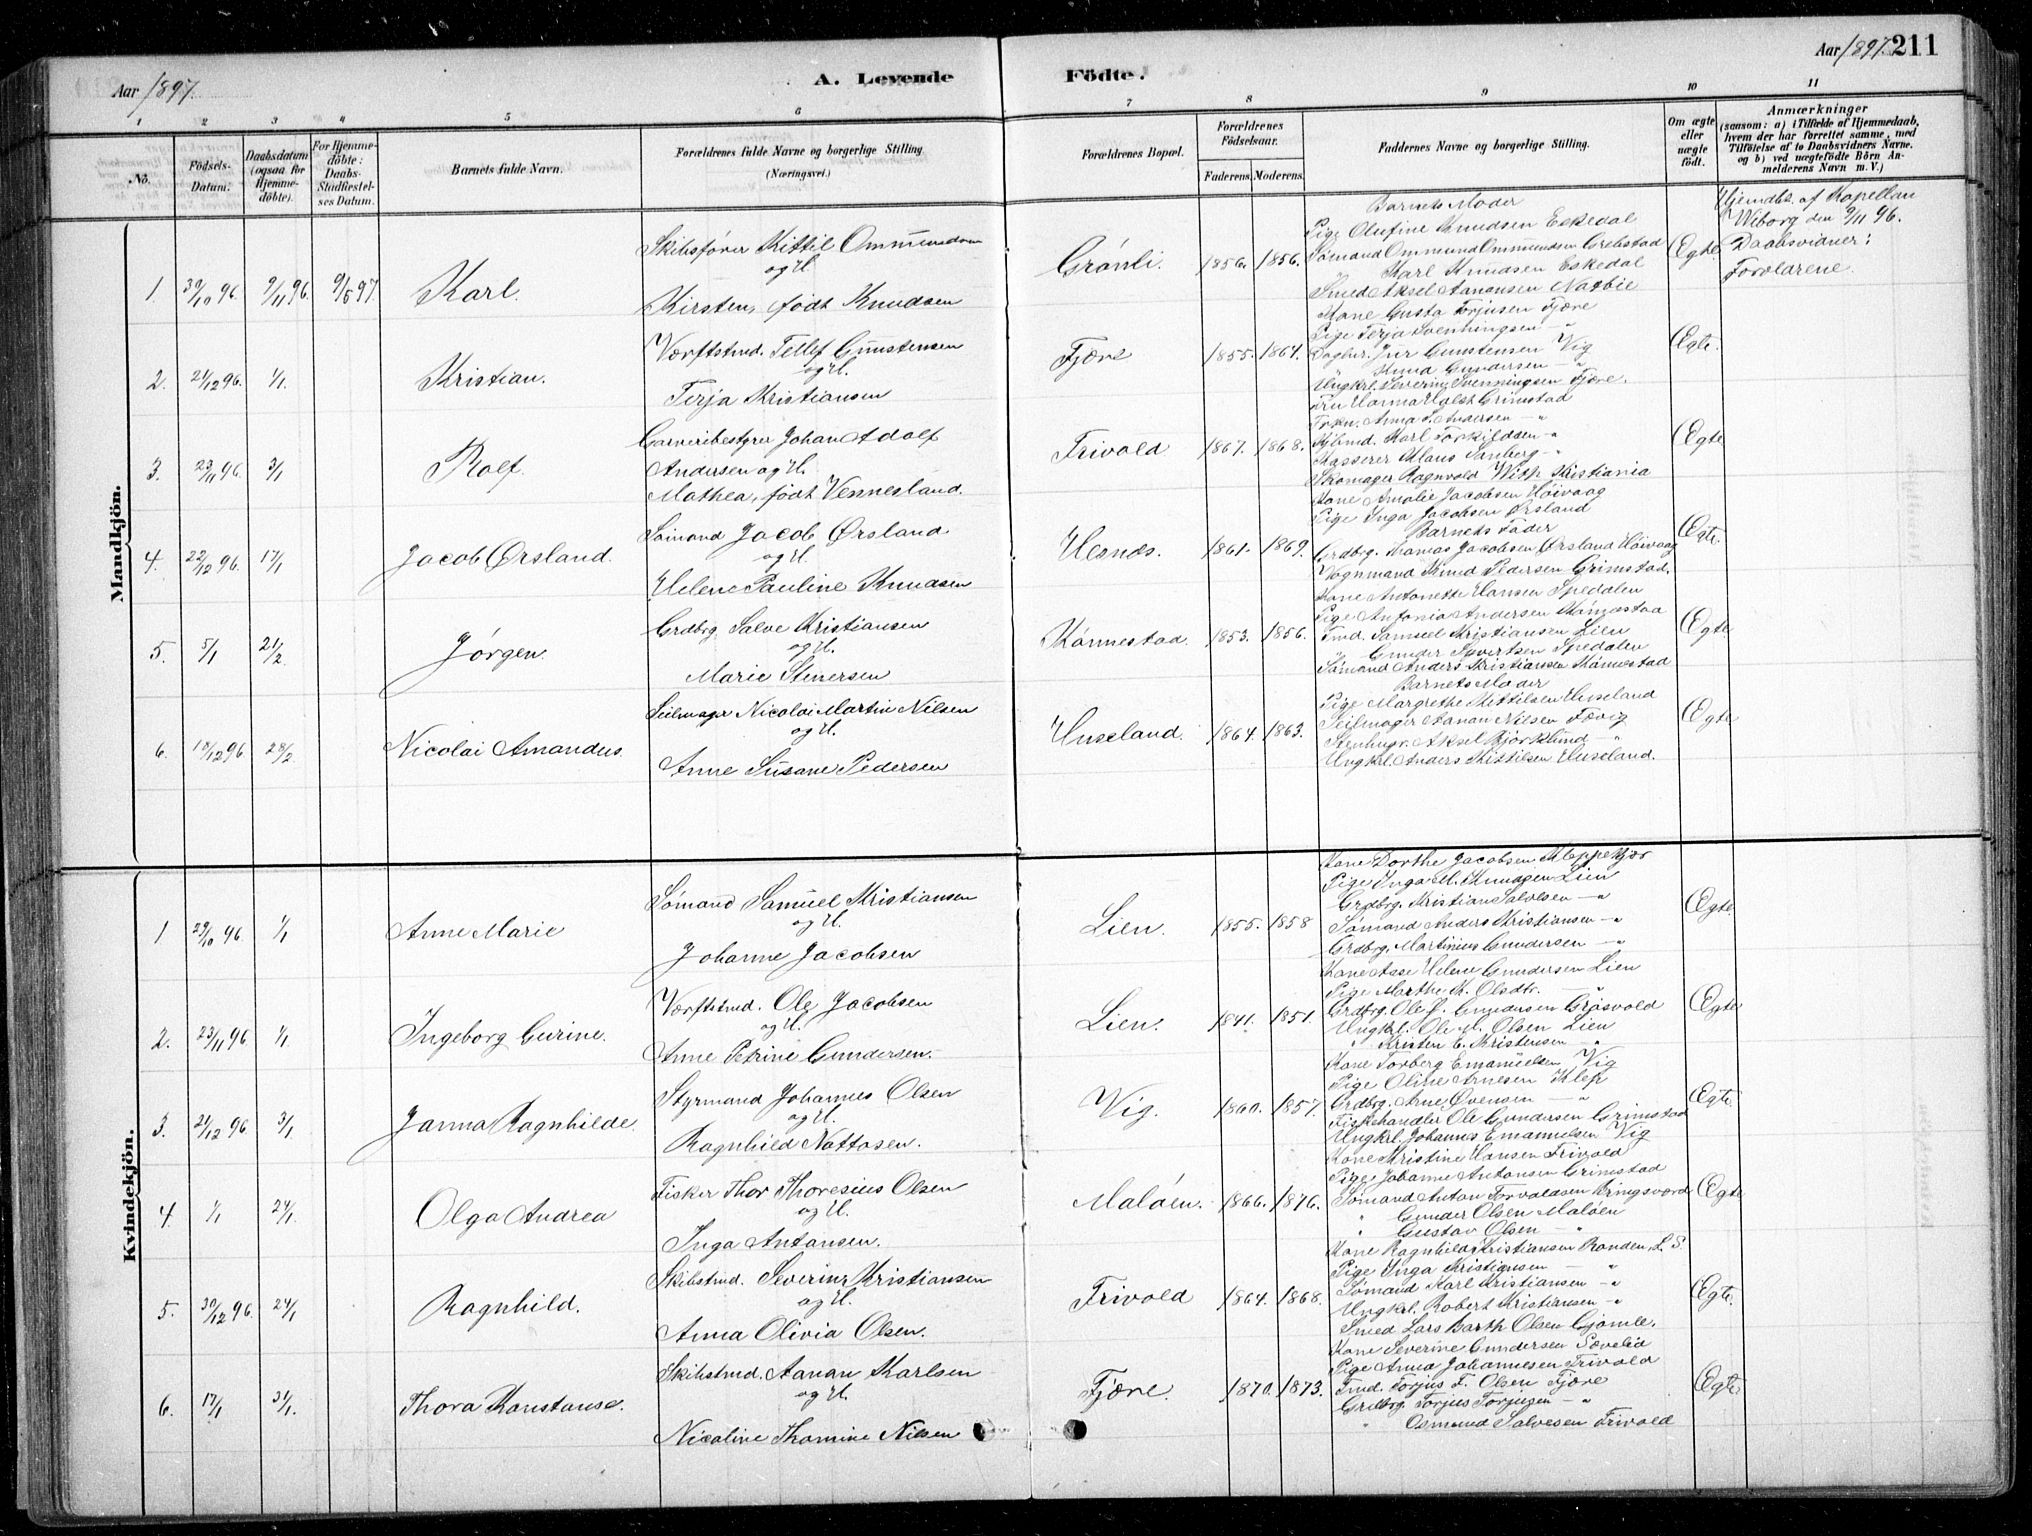 Aar 1897.
A. Levende Födte.
Aar 1897. 211
1 2 3 4 5 6 7 8 9 10 11
No.
Födsels-Datum.
Daabsdatum (ogsaa for Hjemmedöbte).
For Hjemmedöbte: Daabs-Stadfæstelses Datum.
Barnets fulde Navn.
Forældrenes fulde Navne og borgerlige Stilling.
(Næringsvei.)
Forældrenes Bopæl.
Forældrenes Födselsaar.
Faderens. Moderens.
Faddernes Navne og borgerlige Stilling.
Om ægte eller uægte födt.
Anmærkninger
(saasom: a) i Tilfælde af Hjemmedaab, hvem der har forrettet samme, med Tilföielse af to Daabsvidners Navne. og b) ved uægtefödte Börn Anmelderens Navn m. V.)
Mandkjön.
1. 30/10 96. 9/11 96. 9/5 97. Karl.
Skibsfører Kittil Ommundsen
og H.
Kirsten, født Knudsen
Grönli. 1856. 1856.
Barnets Moder
Pige Olufine Knudsen Eskedal
Sømand Ommund Ommundsen Grebstad
Karl Knudsen Eskedal
Smed Aksel Aanonsen Natbie
Ægte
Hjemdbt. af Kapellan
Wiborg den 9/11 96.
Daabsvidner:
Forældrene.
2. 21/12 96. 1/1. Kristian.
Værftstmd. Tellef Gunstensen
og H.
Terja Kristiansen
Fjære 1855. 1864.
Kone Gusta Torjusen Fjære
Pige Terja Svenningsen — "
Knud Gundersen — "
Ungkrl. Severin Svenningsen Fjære.
Ægte.
3. 23/11 96. 3/1 Rolf.
Garveribestyrer Johan Adolf
Andersen og H.
Mathea, født Vennesland.
Frivold 1867. 1868.
Fru Hanna Holst Grimstad
Frkn. Anna S. Andersen — "
Karl Torkildsen — "
Skomager Ragnvald With Kristiania
Ægte
4. 22/12 96. 17/1 Jacob Ørsland.
Sömand Jacob Ørsland
og H.
Helene Pauline Knudsen
Hesnes. 1861. 1869.
Kone Amalie Jacobsen Höivaag
Pige Inga Jacobsen Ørsland
Barnets Fader
Grdbrg. Thomas Jacobsen Ørsland Höivaag
Vognmand Knud Pedersen Grimstad.
Ægte.
5. 5/1 21/2. Jørgen.
Grdbrg Salve Kristiansen
og H.
Marie Stenersen
Könnestad. 1853. 1856.
Kone Antonette Hansen Spedalen
Pige Antonia Andersen Könnestad
Tmd. Samuel Kristiansen Lien
Gunder Syvertsen Spedalen
Sömand Anders Kristiansen Könnestad
Ægte
6. 18/12 96. 28/2. Nicolai Amandus.
Seilmager Nicolai Martin Nilsen
og H.
Anne Susane Pedersen
Huseland. 1864. 1863.
Barnets Moder
Pige Margrethe Kittilsen Huseland
Seilmager Aanon Nilsen Fævig
Stenhugr. Aksel Bjørklund — "
Ungkrl. Anders Kittilsen Huseland.
Ægte
Kvindekjön.
1 29/10 96. 1/1 Anne Marie
Sømand Samuel Kristiansen
og H.
Johanne Jacobsen
Lien. 1855. 1858
Kone Dorthe Jacobsen Kleppekjær
Pige Inga M. Knudsen Lien
Grdbrg. Kristian Salvesen — "
Sømand Anders Kristiansen — "
Grdbrg. Martinius Gundersen — "
Ægte
2. 23/11 96 1/1 Ingeborg Gurine.
Værftstmd. Ole Jacobsen
og H.
Anne Petrine Gundersen.
Lien. 1841. 1851.
Kone Asse Helene Gundersen Lien
Pige Marthe K. Olsdtr. — "
Grdbrg. Ole J. Gundersen Gräsvold
Ungkrl. Ole M. Olsen Lien
" Kristen E. Kristensen — "
Ægte
3. 21/12 96. 3/1. Janna Ragnhilde.
Styrmand Johannes Olsen
og H.
Ragnhild Nottosen.
Vig. 1860. 1857.
Kone Torberg Emanuelsen Vig
Pige Oline Arnesen Klep
Grdbrg. Arne Ovensen — "
Fiskehandler Ole Gundersen Grimstad
Ungkrl. Johannes Emanuelsen Vig
Ægte.
4. 1/1 24/1. Olga Andrea
Fisker Thor Thoresius Olsen
og H.
Inga Antonsen.
Malöen. 1866. 1876.
Kone Kristine Hansen Frivold
Pige Johanne Antonsen Grimstad
Sømand Anton Torvaldsen Kringsværd
" Gunder Olsen Malöen
" Gustav Olsen — "
Ægte
5. 30/12 96. 24/1 Ragnhild.
Skibstmd. Severin Kristiansen
og H.
Anna Olivia Olsen.
Frivold 1864. 1868.
Kone Ragnhild Kristiansen Randen, L. S.
Pige Inga Kristiansen — "
Sømand Karl Kristiansen — "
Ungkrl. Robert Kristiansen — "
Smed Lars Barth Olsen Gjömle.
Ægte.
6. 17/1 31/1. Thora Konstanse.
Skibstmd. Aanon Karlsen
og H.
Nicoline Thomine Nilsen
Fjære. 1870. 1873.
Kone Severine Gundersen Sævelid
Pige Anna Johannesen Frivold
Tmd. Torjus F. Olsen Fjære
Grdbrg Torjus Torjusen — "
" Osmund Salvesen Frivold
Ægte